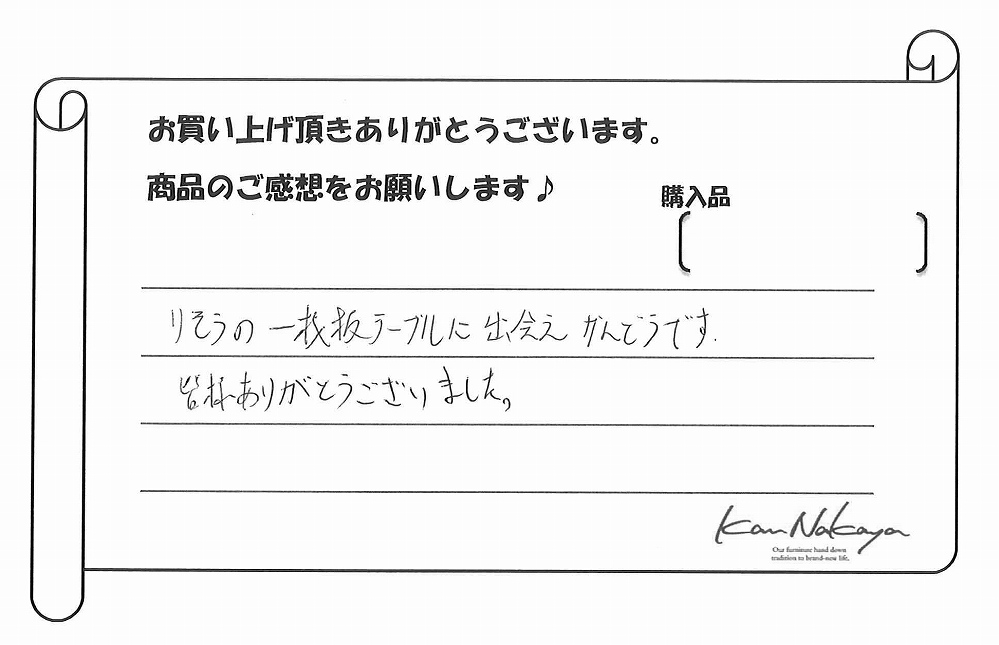 お買い上げ頂きありがとうございます。
商品のご感想をお願いします♪
購入品
りそうの一枚板テーブルに出会えかんどうです.
皆様ありがとうございました。
Kan Nakaya
Our furniture hand down
tradition to brand-new life.